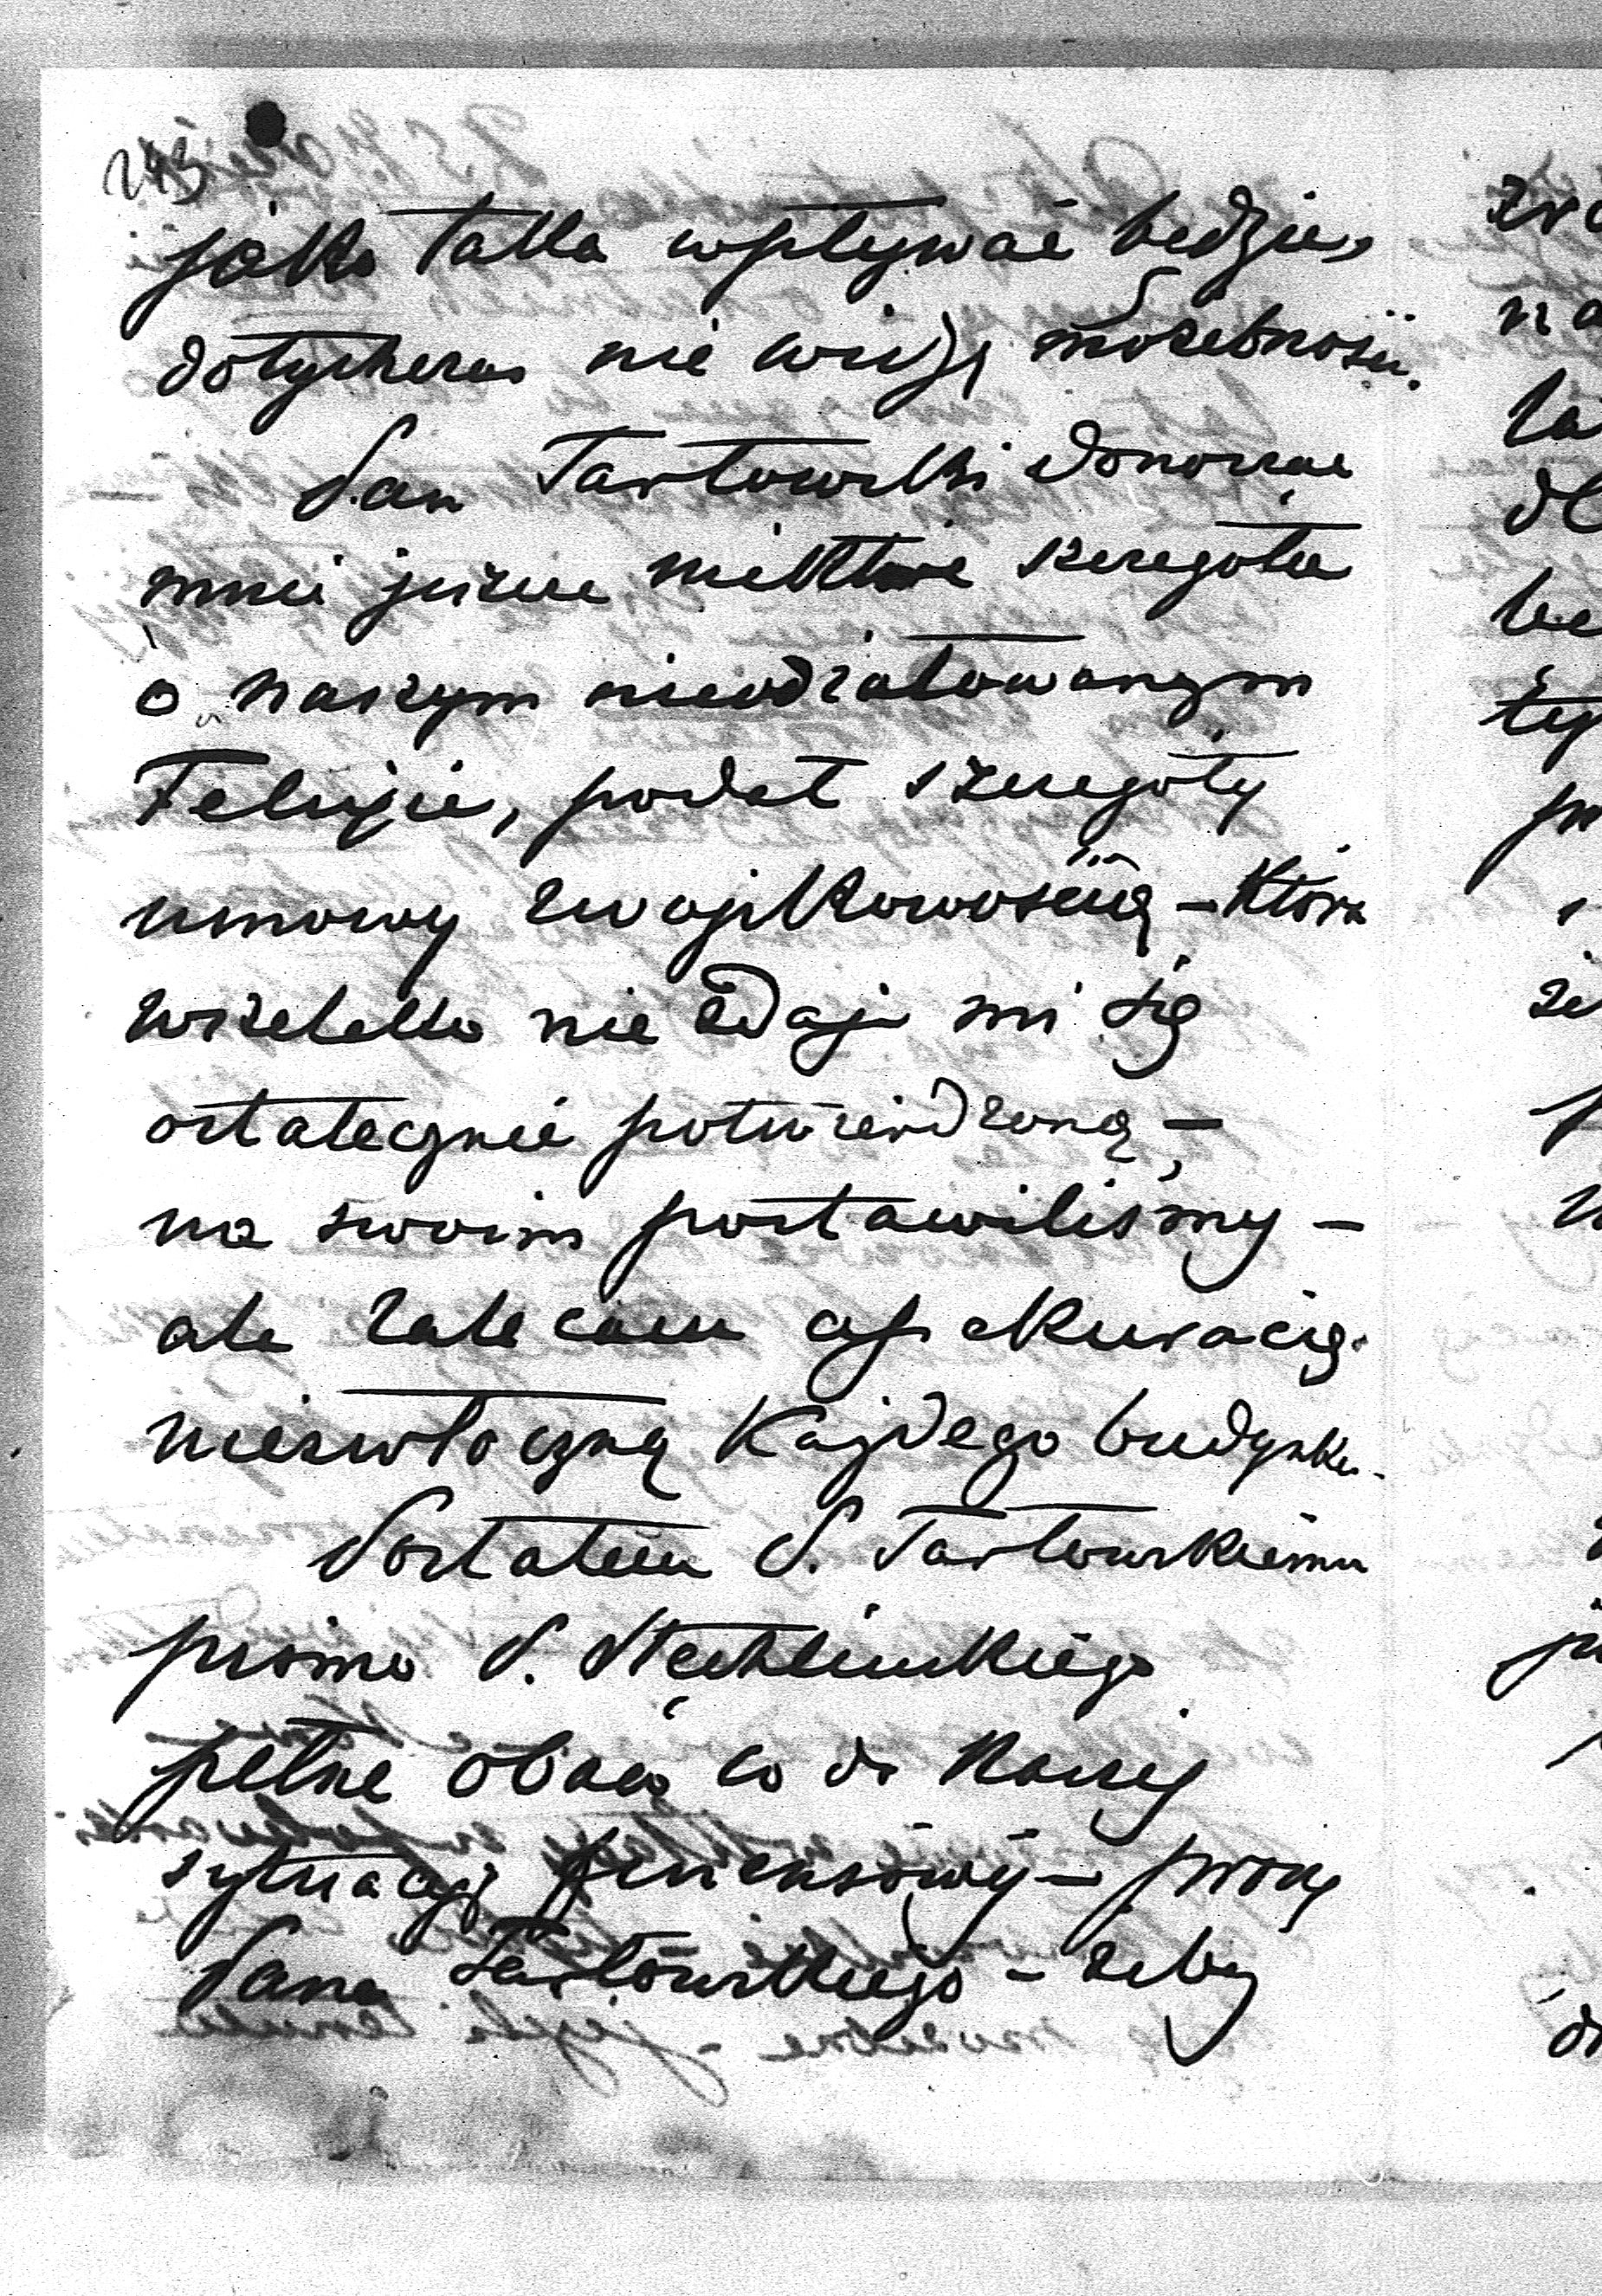 243
jako taka wpływać będzie,
dotychczas nie widzę możebności.
Pan Tarłowski donosząc
mnie jeszcze niektóre szczegóła
o naszym nieodżałowanym
Felusie, podał szczegóły
umowy z wojskowością – która
wszelako nie zdaje mi się
ostatecznie potwierdzoną –
na swoim postawiliśmy –
ale zalecam asekuracię
niezwłoczną każdego budynku.
Posłałem P. Tarłowskiemu
pismo P. Stechlińskiego
pełne obaw co do naszej
sytuacyi finansowej – proszę
Pana Tarłowskiego – żeby